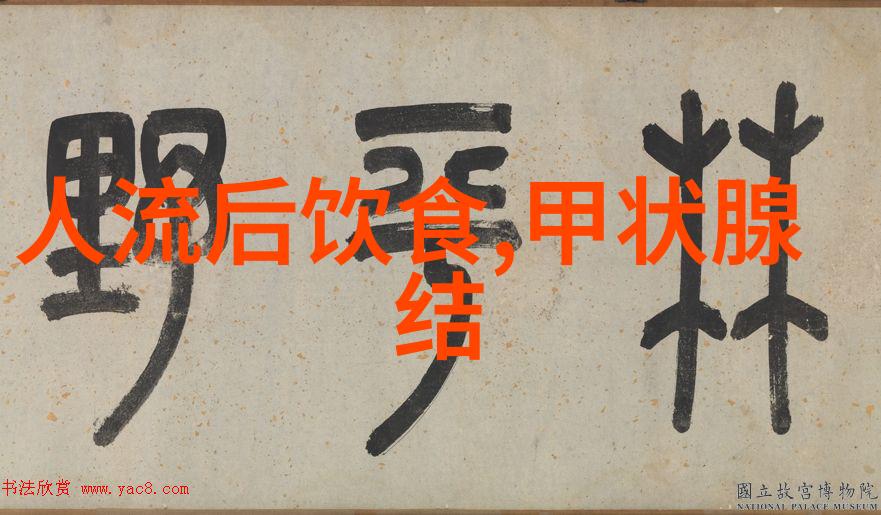 林平野
人流后饮食,甲状腺
结
书法欣赏 www.yac8.com
國立故宮博物院
NATIONAL PALACE MUSEUM